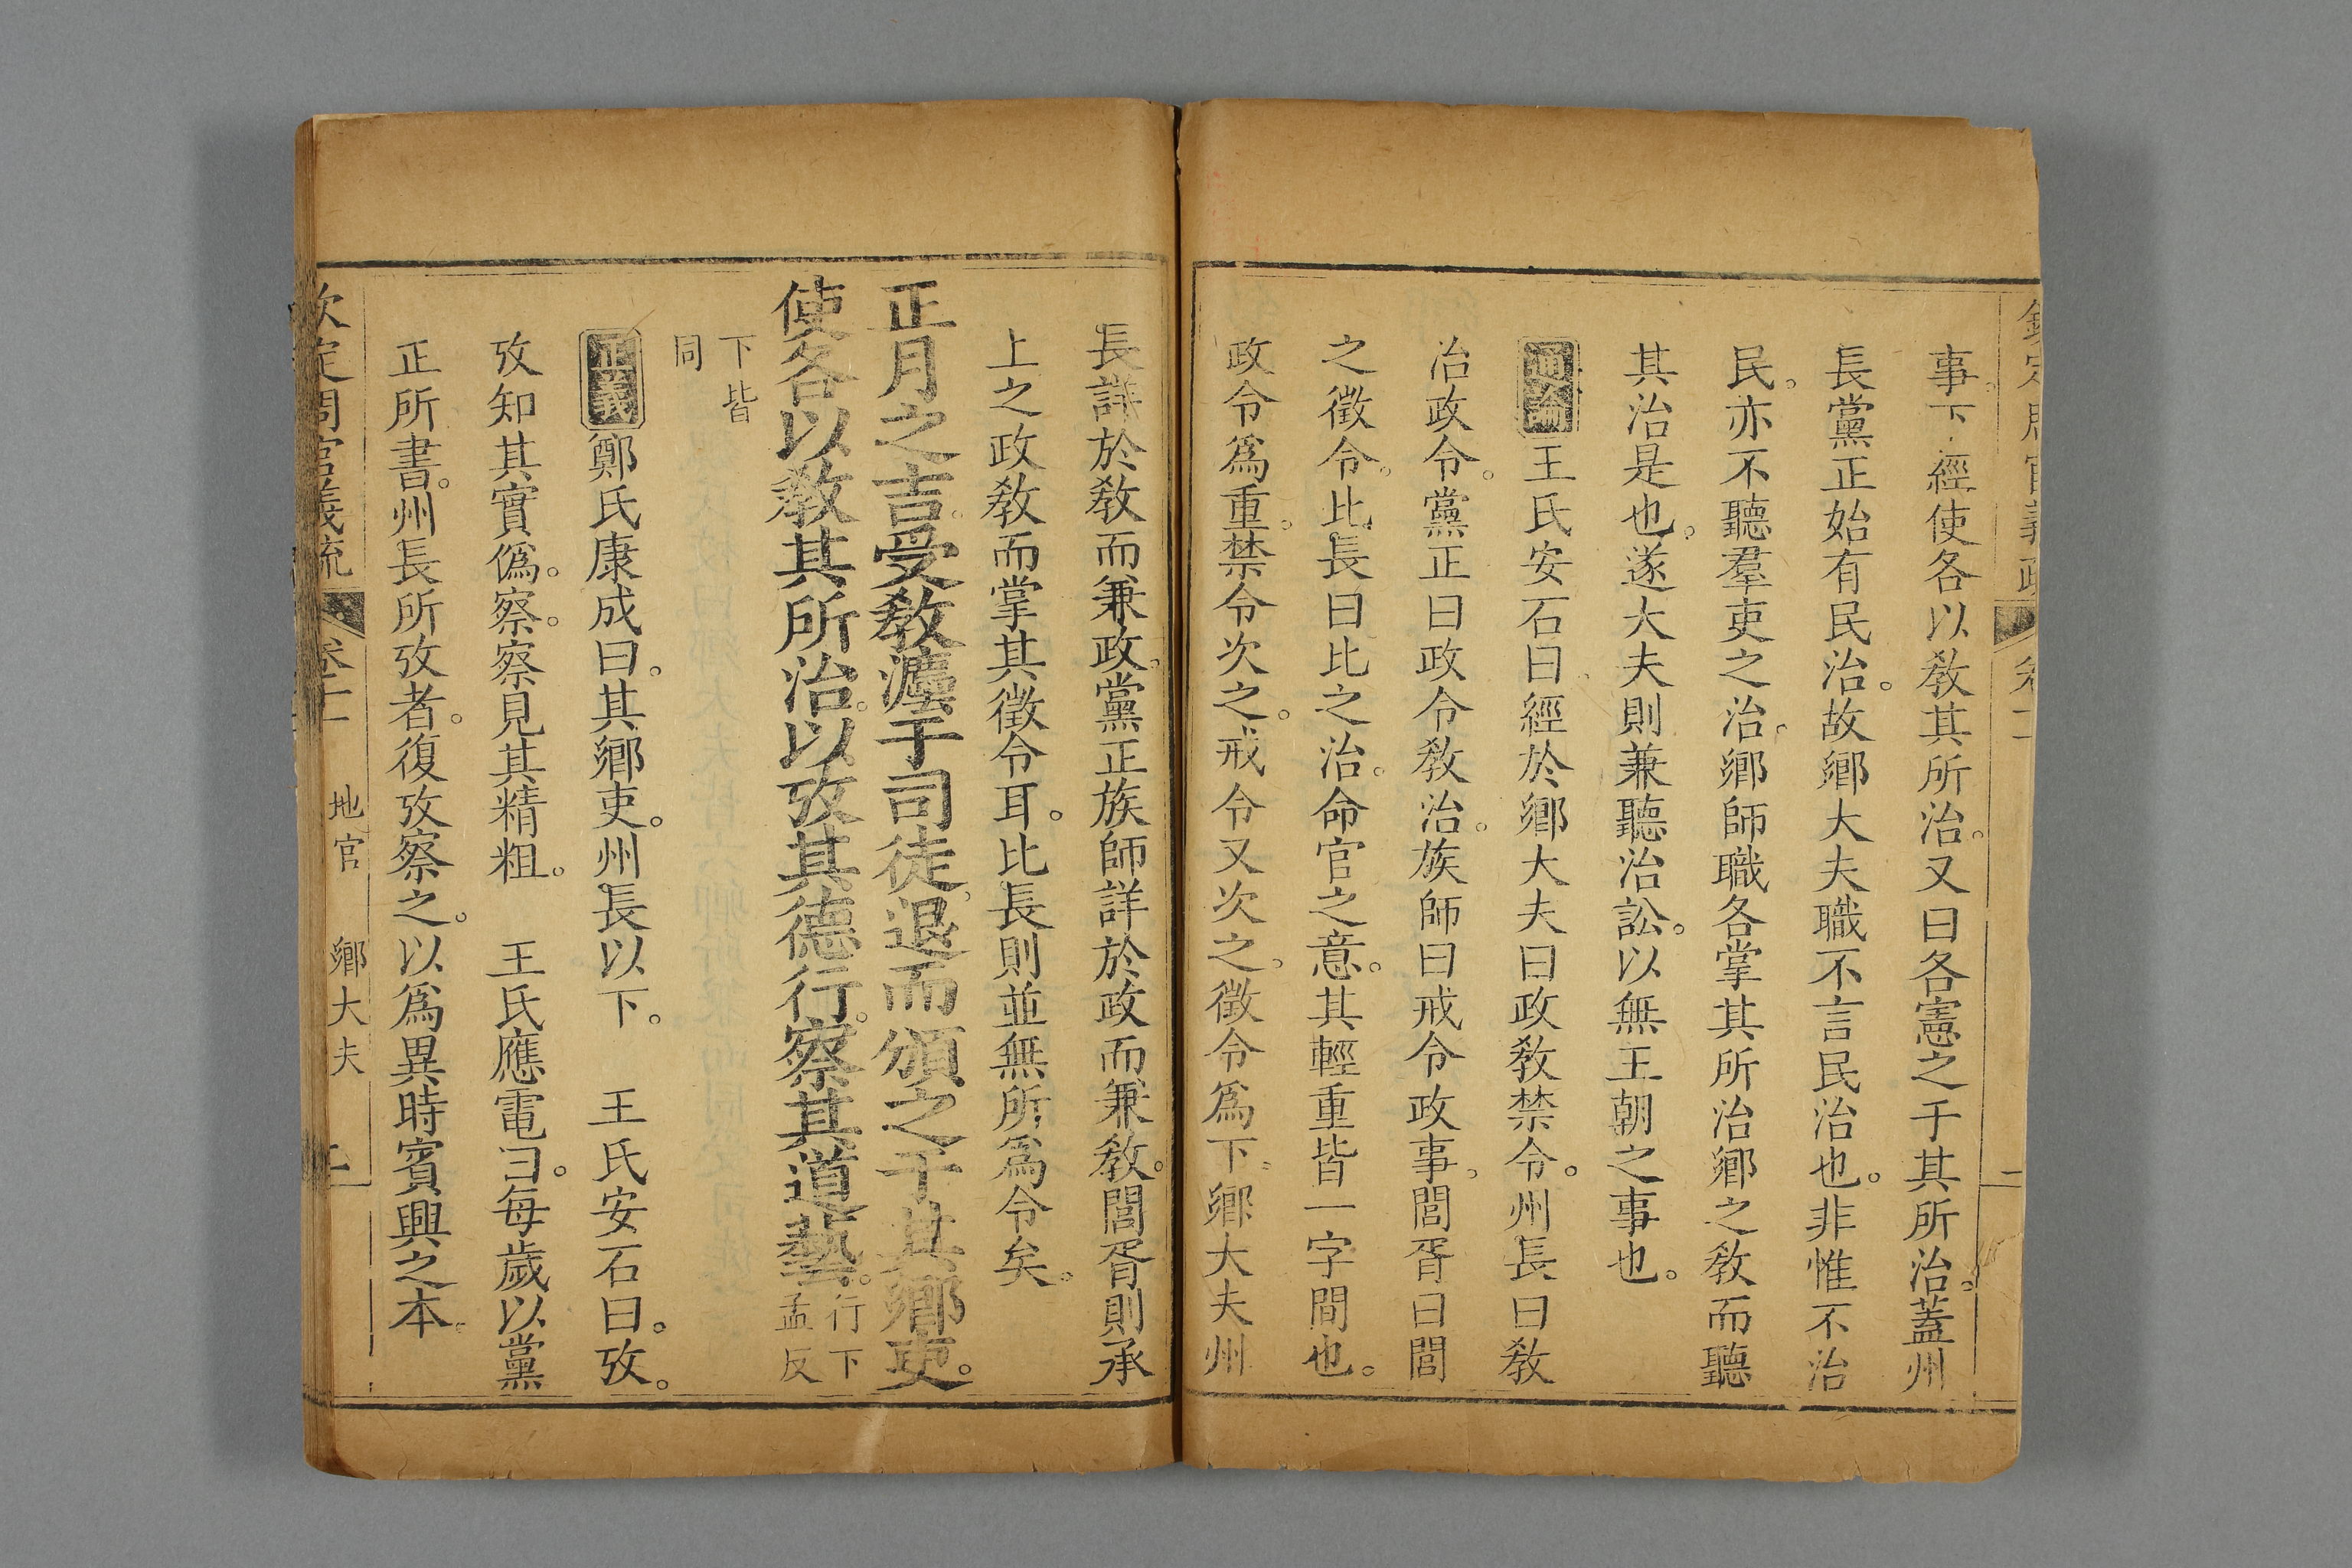 事。下經使各以敎其所治。又曰各憲之于其所治。蓋州
長黨正始有民治。故鄉大夫職不言民治也。非惟不治
民。亦不聽羣吏之治。鄉師職各掌其所治鄉之敎而聽
其治是也。遂大夫則兼聽治訟。以無王朝之事也。
通論王氏安石曰經於鄉大夫曰政敎禁令。州長曰敎
治政令。黨正曰政令敎治。族師曰戒令政事。閭胥曰閭
之徵令。比長曰比之治。命官之意。其輕重皆一字間也。
政令爲重。禁令次之。戒令又次之。徵令爲下。鄉大夫州
長詳於敎而兼政。黨正族師詳於政而兼敎。閭胥則承
上之政敎而掌其徵令耳。比長則並無所爲令矣。
正月之吉。受敎灋于司徒。退而頒之于其鄉吏。
使各以敎其所治。以攷其德行。察其道藝。行下孟反
下皆同
正義鄭氏康成曰。其鄉吏。州長以下。 王氏安石曰。攷。
攷知其實僞。察。察見其精粗。 王氏應電曰。每歲以黨
正所書。州長所攷者。復攷察之。以爲異時賓興之本。
欽定周官義疏 卷十一 地官 鄉大夫